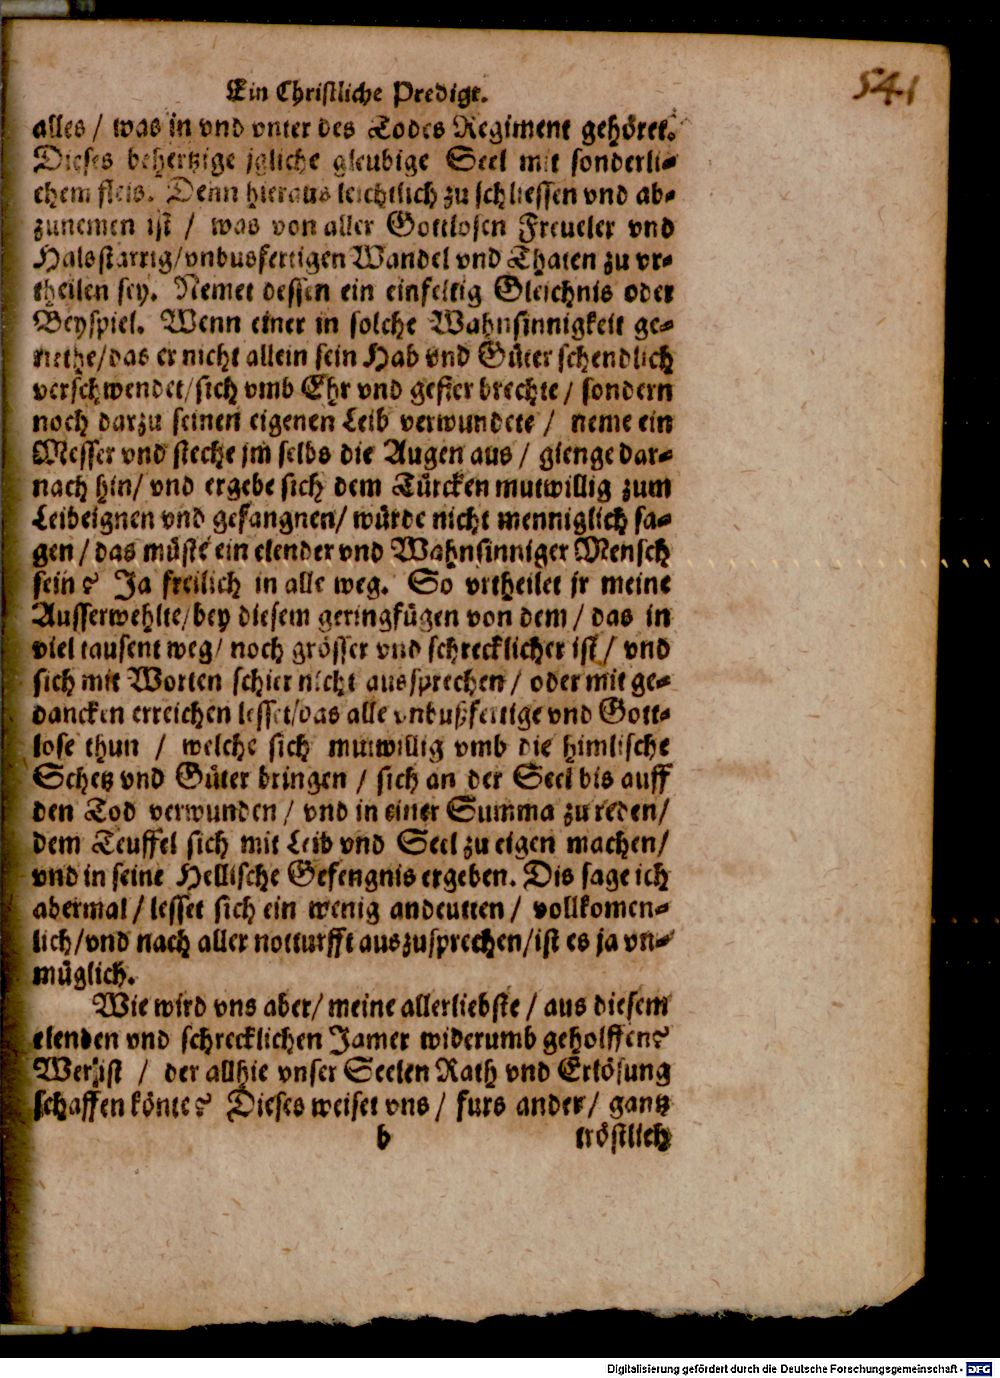 Ein Christliche Predigt.
541
alles / was in vnd vnter des Todes Regiment gehöret.
Dieses behertzige jgliche gleubige Seel mit sonderli-
chem fleis. Denn hieraus leichtlich zu schliessen vnd ab-
zunemen ist / was von aller Gottlosen Freueler vnd
Halsstarrig/vnbusfertigen Wandel vnd Thaten zu vr-
theilen sey. Nemet dessen ein einfeltig Gleichnis oder
Beyspiel. Wenn einer in solche Wahnsinnigkeit ge-
riethe/das er nicht allein sein Hab vnd Güter schendlich
verschwendet/sich vmb Ehr vnd gefier brechte / sondern
noch darzu seinen eigenen Leib verwundete / neme ein
Messer vnd steche jm selbs die Augen aus / gienge dar-
nach hin/ vnd ergebe sich dem Türcken mutwillig zum
Leibeignen vnd gefangnen/ würde nicht menniglich sa-
gen / das müste ein elender vnd Wahnsinniger Mensch
sein? Ja freilich in alle weg. So vrtheilet jr meine
Ausserwehlte/bey diesem geringfügen von dem / das in
viel tausent weg/ noch grösser vnd schrecklicher ist / vnd
sich mit Worten schier nicht aussprechen / oder mit ge-
dancken erreichen lesset/das alle vnbußfertige vnd Gott-
lose thun / welche sich mutwillig vmb die himlische
Schetz vnd Güter bringen / sich an der Seel bis auff
den Tod verwunden / vnd in einer Summa zu reden/
dem Teuffel sich mit Leib vnd Seel zu eigen machen/
vnd in seine Hellische Gefengnis ergeben. Dis sage ich
abermal / lesset sich ein wenig andeutten / vollkomen-
lich/vnd nach aller notturfft auszusprechen/ist es ja vn-
müglich.
Wie wird vns aber/ meine allerliebste / aus diesem
elenden vnd schrecklichen Jamer widerumb geholffen?
Wer ist / der allhie vnser Seelen Rath vnd Erlösung
schaffen könte? Dieses weiset vns / furs ander/ gantz
b
tröstlich
Digitalisierung gefördert durch die Deutsche Forschungsgemeinschaft - DFG